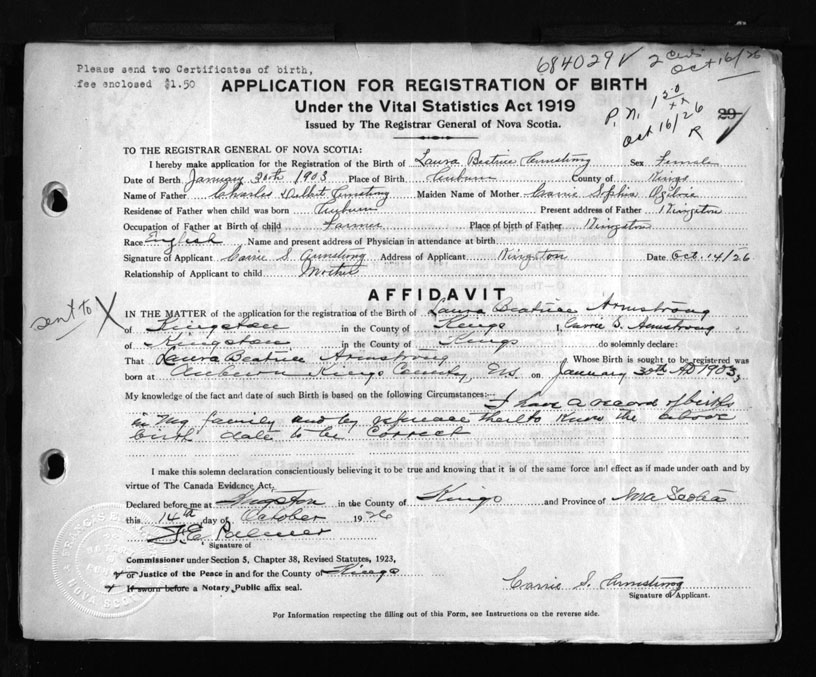 Please send two Certificates of birth,
fee enclosed $1.50
684029 ✓
2 Certs
Oct 16/26
APPLICATION FOR REGISTRATION OF BIRTH
Under the Vital Statistics Act 1919
Issued by The Registrar General of Nova Scotia.
P. N. 150/xx
Oct 16/26
R
29
TO THE REGISTRAR GENERAL OF NOVA SCOTIA:
I hereby make application for the Registration of the Birth of Laura Beatrice Armstrong Sex Female
Date of Birth January 30th 1903 Place of Birth Auburn County of Kings
Name of Father Charles Armstrong Maiden Name of Mother Carrie Sophia Ogilvie
Residense of Father when child was born Auburn Present address of Father Kingston
Occupation of Father at Birth of child Farmer Place of birth of Father Kingston
Race English Name and present address of Physician in attendance at birth
Signature of Applicant Carrie S. Armstrong Address of Applicant Kingston Date Oct. 14/26
Relationship of Applicant to child Mother
AFFIDAVIT
sent to X
IN THE MATTER of the application for the registration of the Birth of Laura Beatrice Armstrong
of Kingston in the County of Kings I, Carrie S. Armstrong
of Kingston in the County of Kings do solemnly declare:
That Laura Beatrice Armstrong Whose Birth is sought to be registered was
born at Auburn Kings County, N.S. on January 30th AD 1903
My knowledge of the fact and date of such Birth is based on the following Circumstances:— I have a record of births
in my family and by reference thereto know the above
birth date to be correct
I make this solemn declaration conscientiously believing it to be true and knowing that it is of the same force and effect as if made under oath and by
virtue of The Canada Evidence Act,
Declared before me at Kingston in the County of Kings and Province of Nova Scotia
this 14th day of October 1926
F. E. Palmer
Signature of
Commissioner under Section 5, Chapter 38, Revised Statutes, 1923,
or Justice of the Peace in and for the County of Kings
If sworn before a Notary Public affix seal.
Carrie S. Armstrong
Signature of Applicant.
For Information respecting the filling out of this Form, see Instructions on the reverse side.